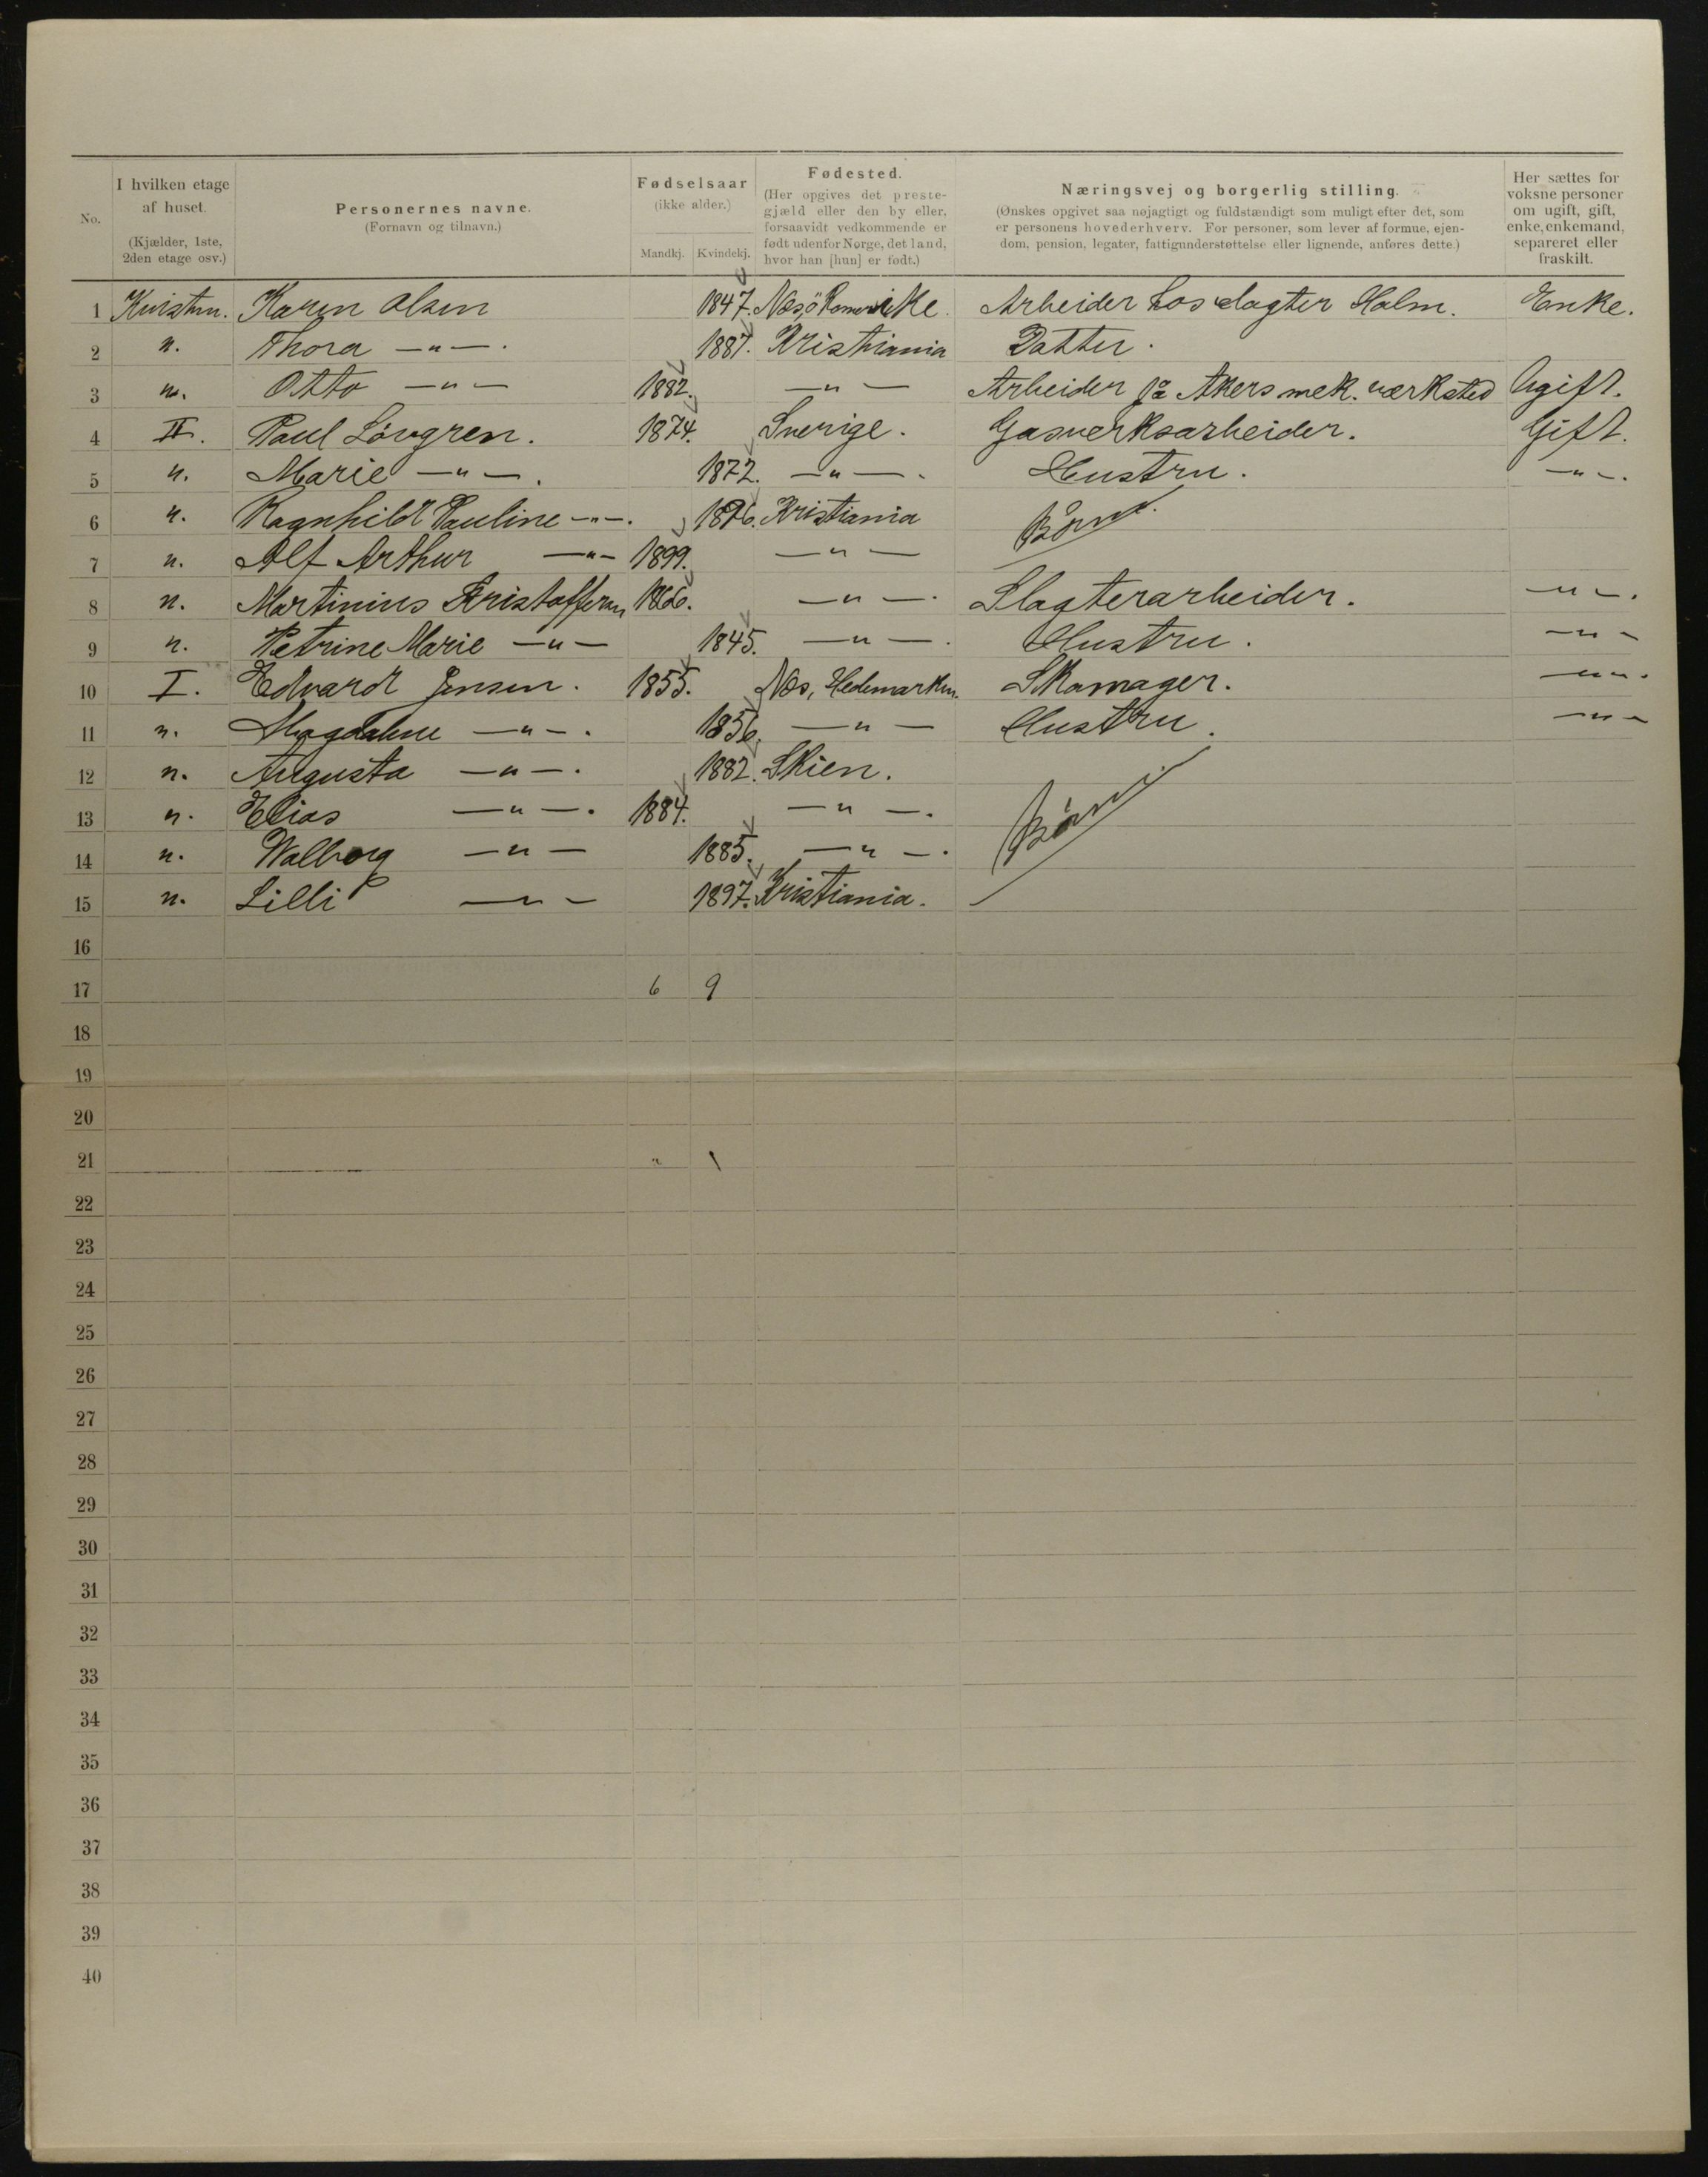 No. | I hvilken etage af huset. (Kjælder, 1ste, 2den etage osv.) | Personernes navne. (Fornavn og tilnavn.) | Fødselsaar (ikke alder.) Mandkj. | Kvindekj. | Fødested. (Her opgives det prestegjæld eller den by eller, forsaavidt vedkommende er født udenfor Norge, det land, hvor han [hun] er født.) | Næringsvej og borgerlig stilling. (Ønskes opgivet saa nøjagtigt og fuldstændigt som muligt efter det, som er personens hovederhverv. For personer, som lever af formue, ejendom, pension, legater, fattigunderstøttelse eller lignende, anføres dette.) | Her sættes for voksne personer om ugift, gift, enke, enkemand, separeret eller fraskilt.
1 Kvisten. Karen Olsen 1847. Næs, Ö Romerike. Arbeider hos slagter Holm. Enke.
2 n. Thora —„—. 1887. Kristiania Datter.
3 n. Otto —„— 1882. —„— Arbeider på Akers mek. værksted Ugift.
4 II. Paul Lövgren. 1874. Sverige. Gasverksarbeider. Gift.
5 n. Marie —„—. 1872. —„—. Hustru. —„—.
6 n. Ragnhild Pauline —„—. 1896. Kristiania Börn.
7 n. Alf Arthur —„— 1899. —„—
8 n. Martinius Kristoffersen 1866. —„—. Slagterarbeider. —„—.
9 n. Petrine Marie —„— 1845. —„—. Hustru. —„—
10 I. Edvard Jensen. 1855. Næs, Hedemarken. Skomager. —„—.
11 n. Magdalene —„—. 1856. —„— Hustru. —„—
12 n. Augusta —„—. 1882. Skien.
13 n. Elias —„—. 1884. —„—. Börn
14 n. Walborg —„— 1885. —„—.
15 n. Lilli —„— 1897. Kristiania.
16
17 6 9
18
19
20
21 „ 1
22
23
24
25
26
27
28
29
30
31
32
33
34
35
36
37
38
39
40